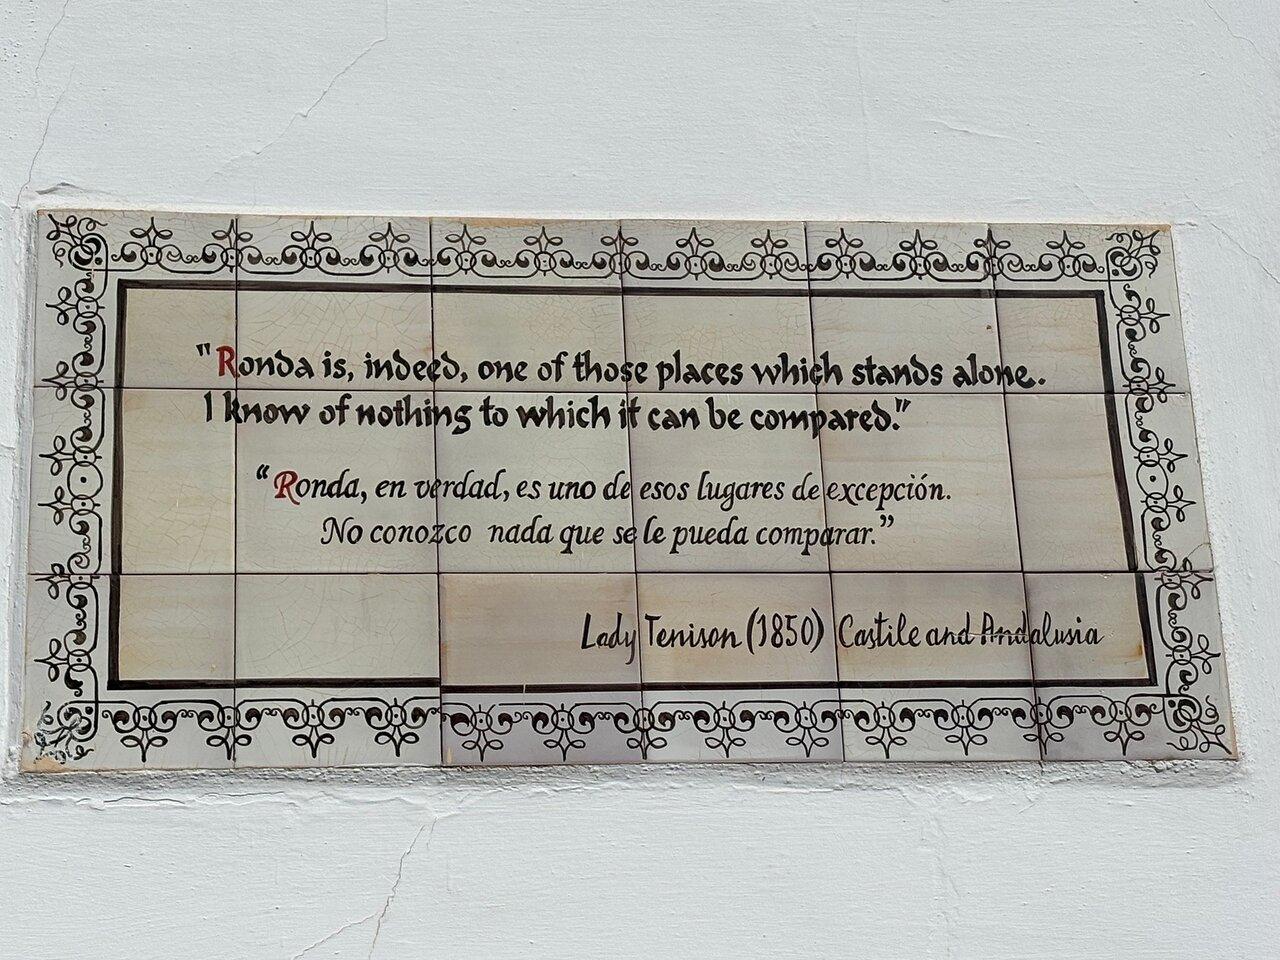 "Ronda is, indeed, one of those places which stands alone..
I know of nothing to which it can be compared."
“Ronda, en verdad, es uno de esos lugares de excepción.
No conozco nada que se le pueda comparar.”
Lady Tenison (1850) Castile and Andalusia